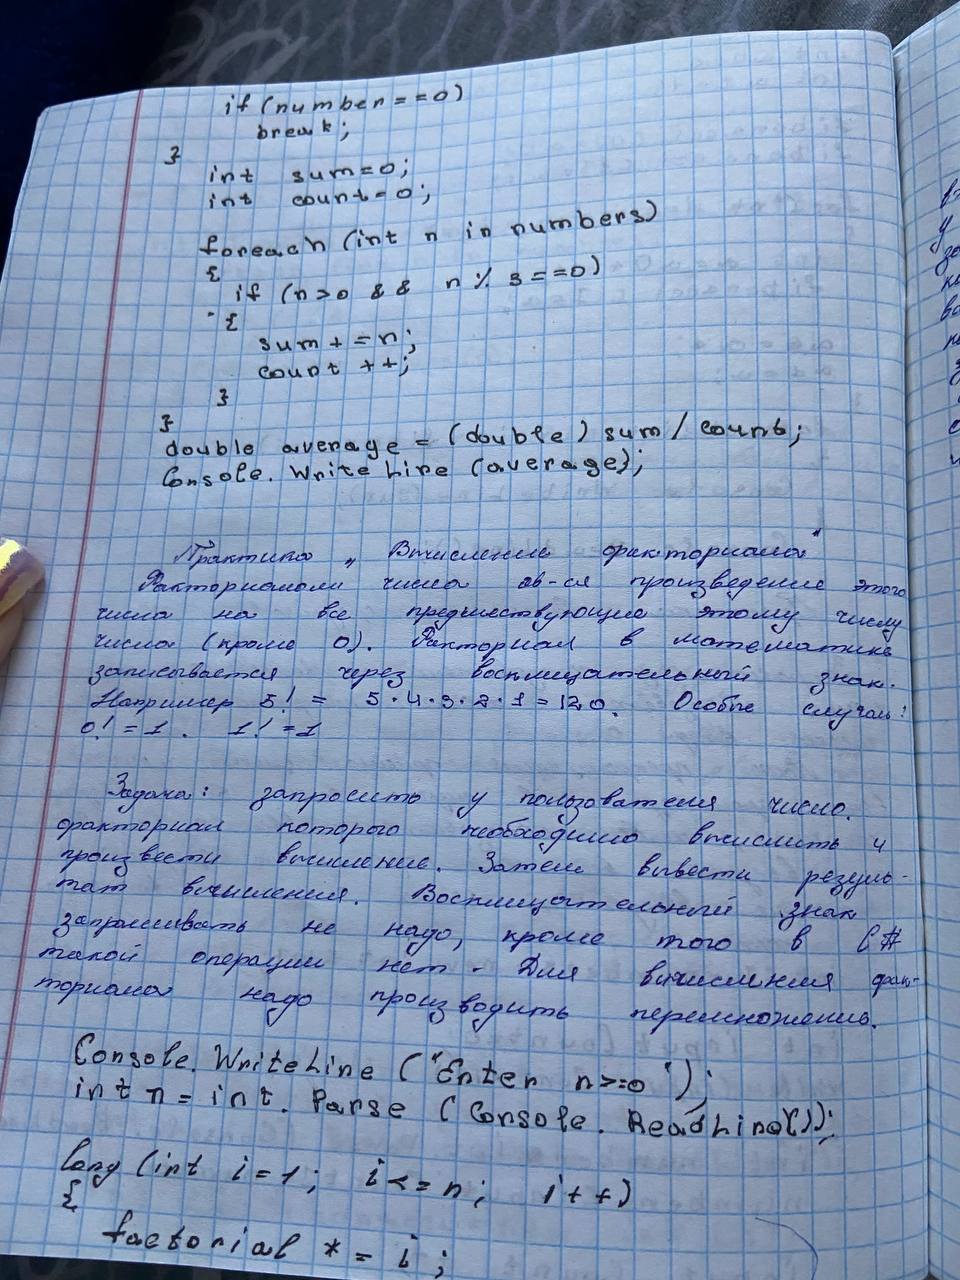 if (number == 0)
break;
}
int sum = 0;
int count = 0;
foreach (int n in numbers)
{
if (n > 0 && n % 3 == 0)
{
sum += n;
count ++;
}
}
double average = (double) sum / count;
Console. WriteLine (average);
Практика „Вычисление факториала"
Факториалом числа яв-ся произведение этого
числа на все предшествующие этому числу
числа (кроме 0). Факториал в математике
записывается через восклицательный знак.
Например 5! = 5·4·3·2·1=120. Особые случаи:
0! = 1. 1! = 1
Задача: запросить у пользователя число.
факториал которого необходимо вычислить и
произвести вычисление. Затем вывести резуль-
тат вычисления. Восклицательный знак
запрашивать не надо, кроме того в C#
такой операции нет. Для вычисления фак-
ториала надо производить перемножение.
Console. WriteLine ("Enter n>=0");
int n = int. Parse (Console. ReadLine());
long (int i = 1; i <= n; i++)
{
factorial *= i;